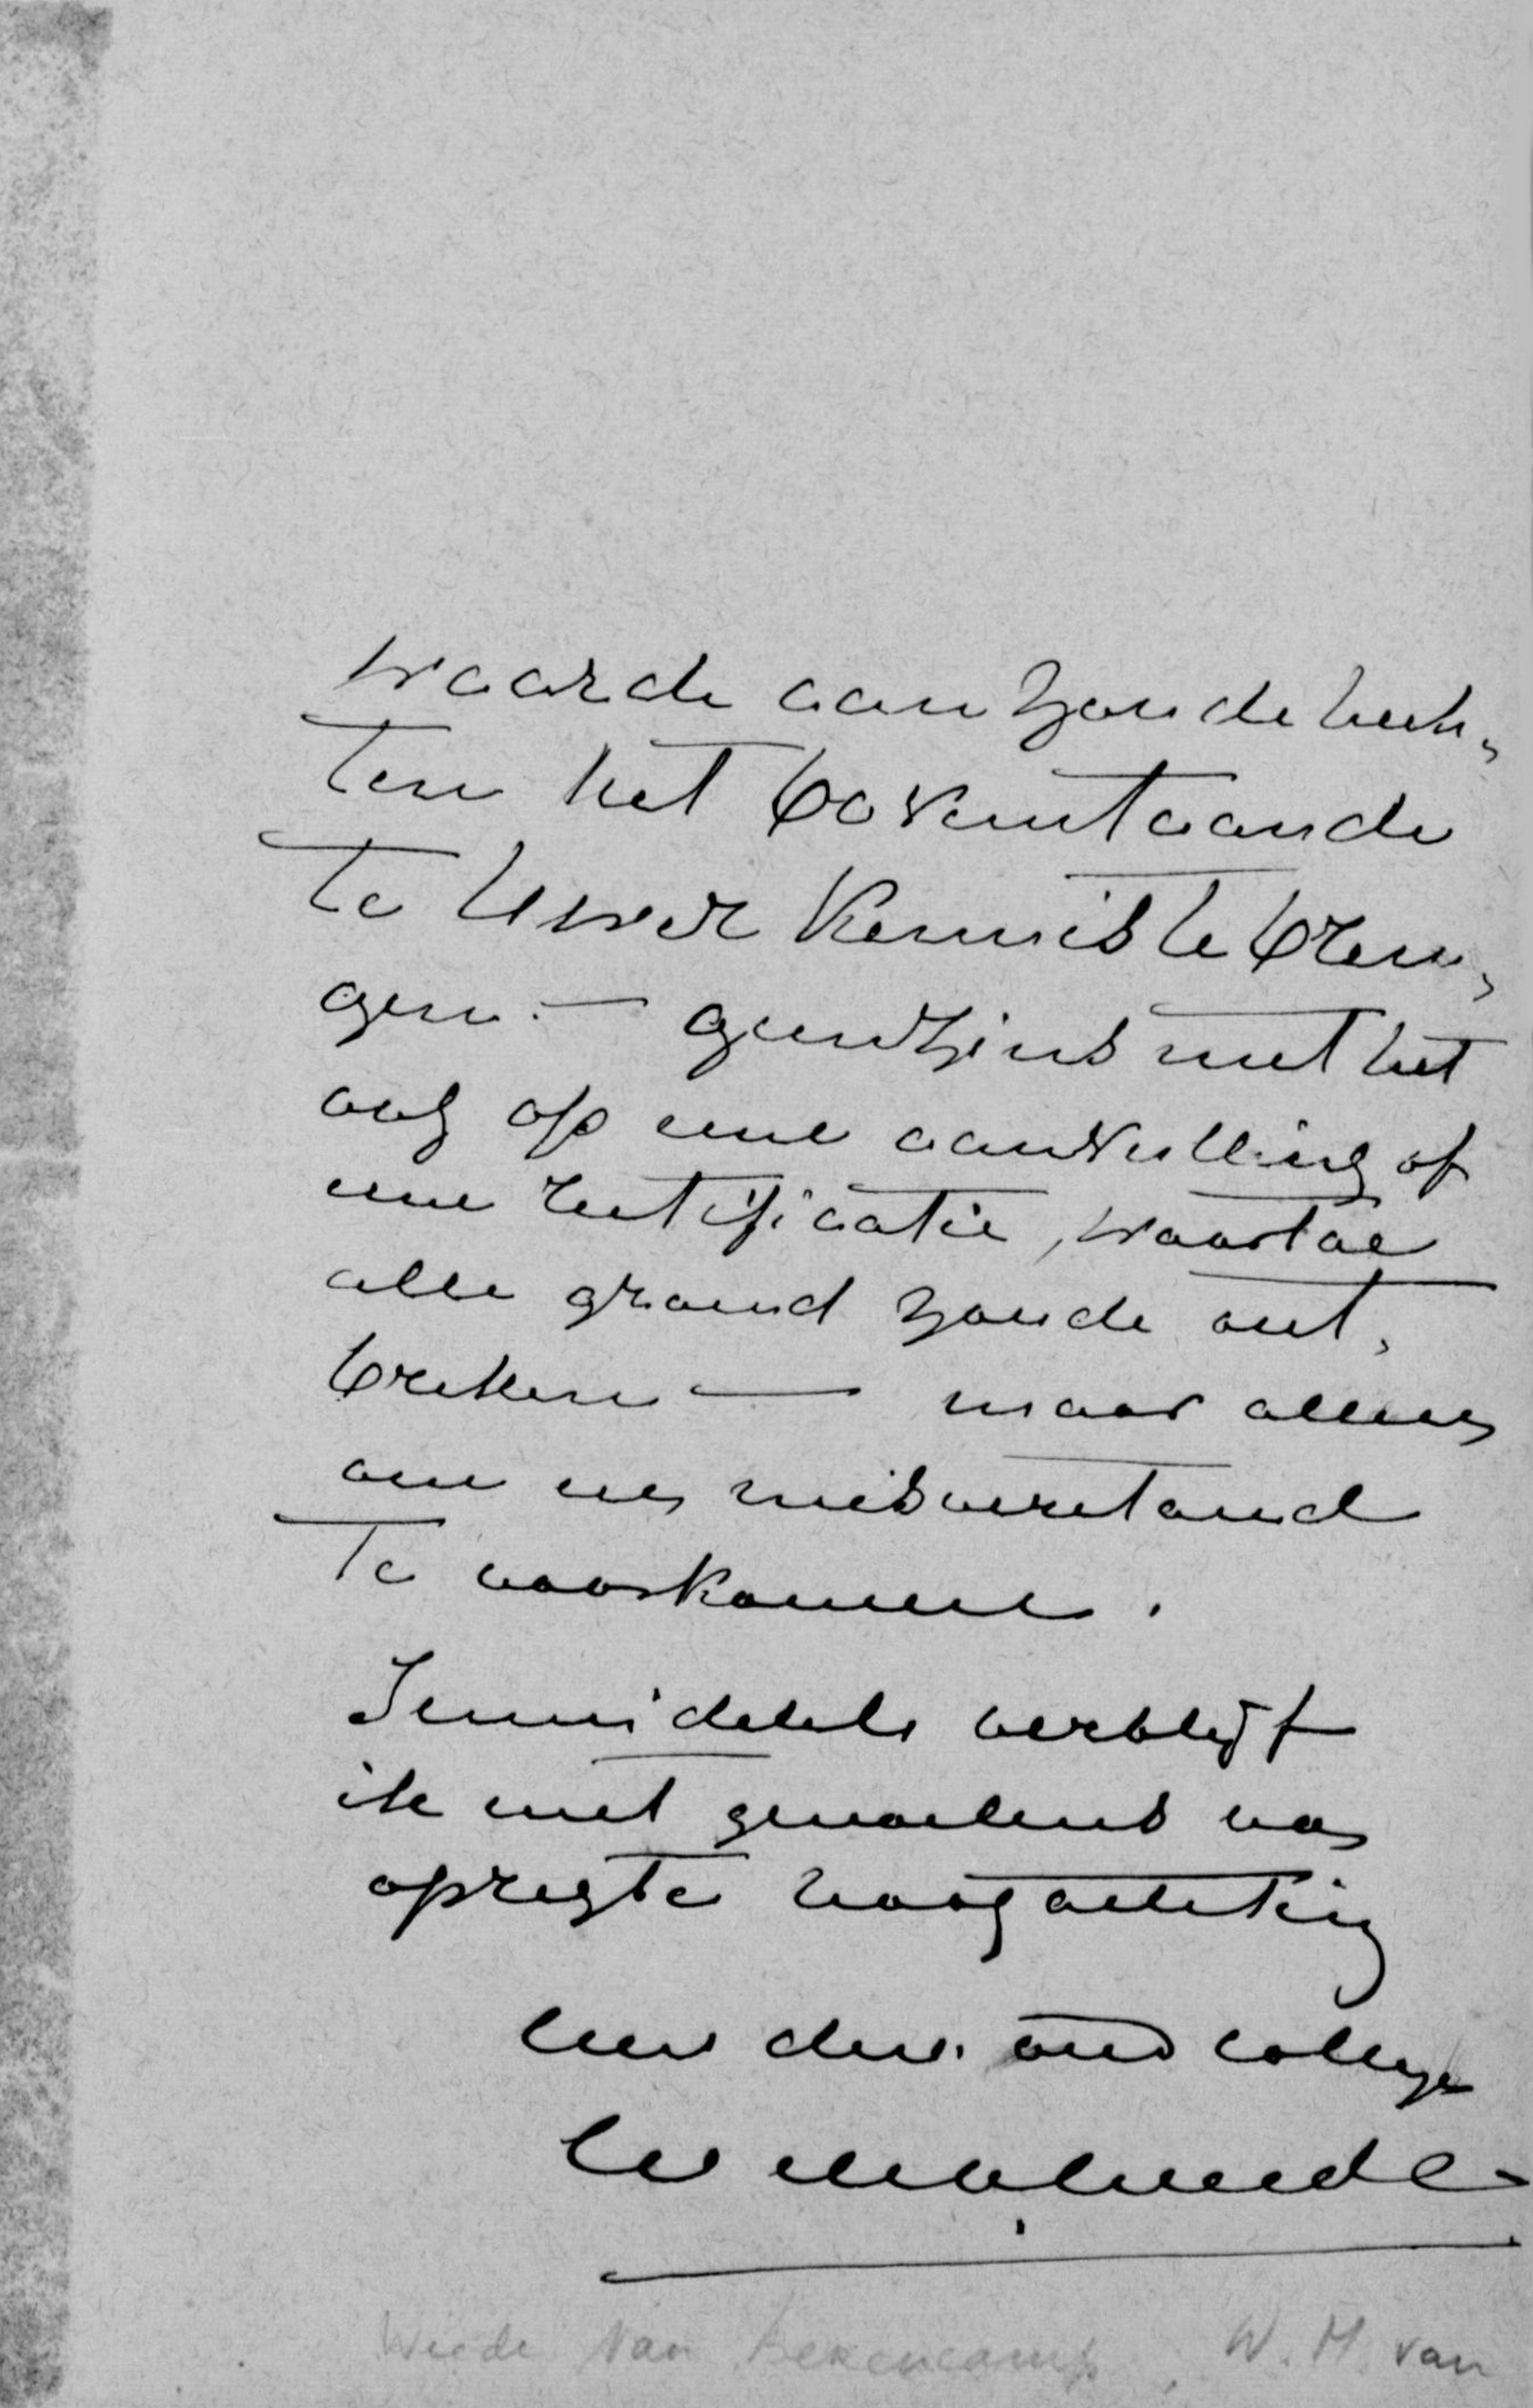 waarde aan zoude hech„
ten het bovenstaande
te Uwer kennis te bren„
gen. — geenszins met het
oog op eene aanvulling of
eene rectificatie, waartoe
alle grond zoude ont„
breken — maar alleen
om een misverstand
te voorkomen.
Inmiddels verblijf
ik met gevoelens van
opregte hoogachting
Uw dw. oud collega
W M v Weede
Weede van Berencamp, W. M. van